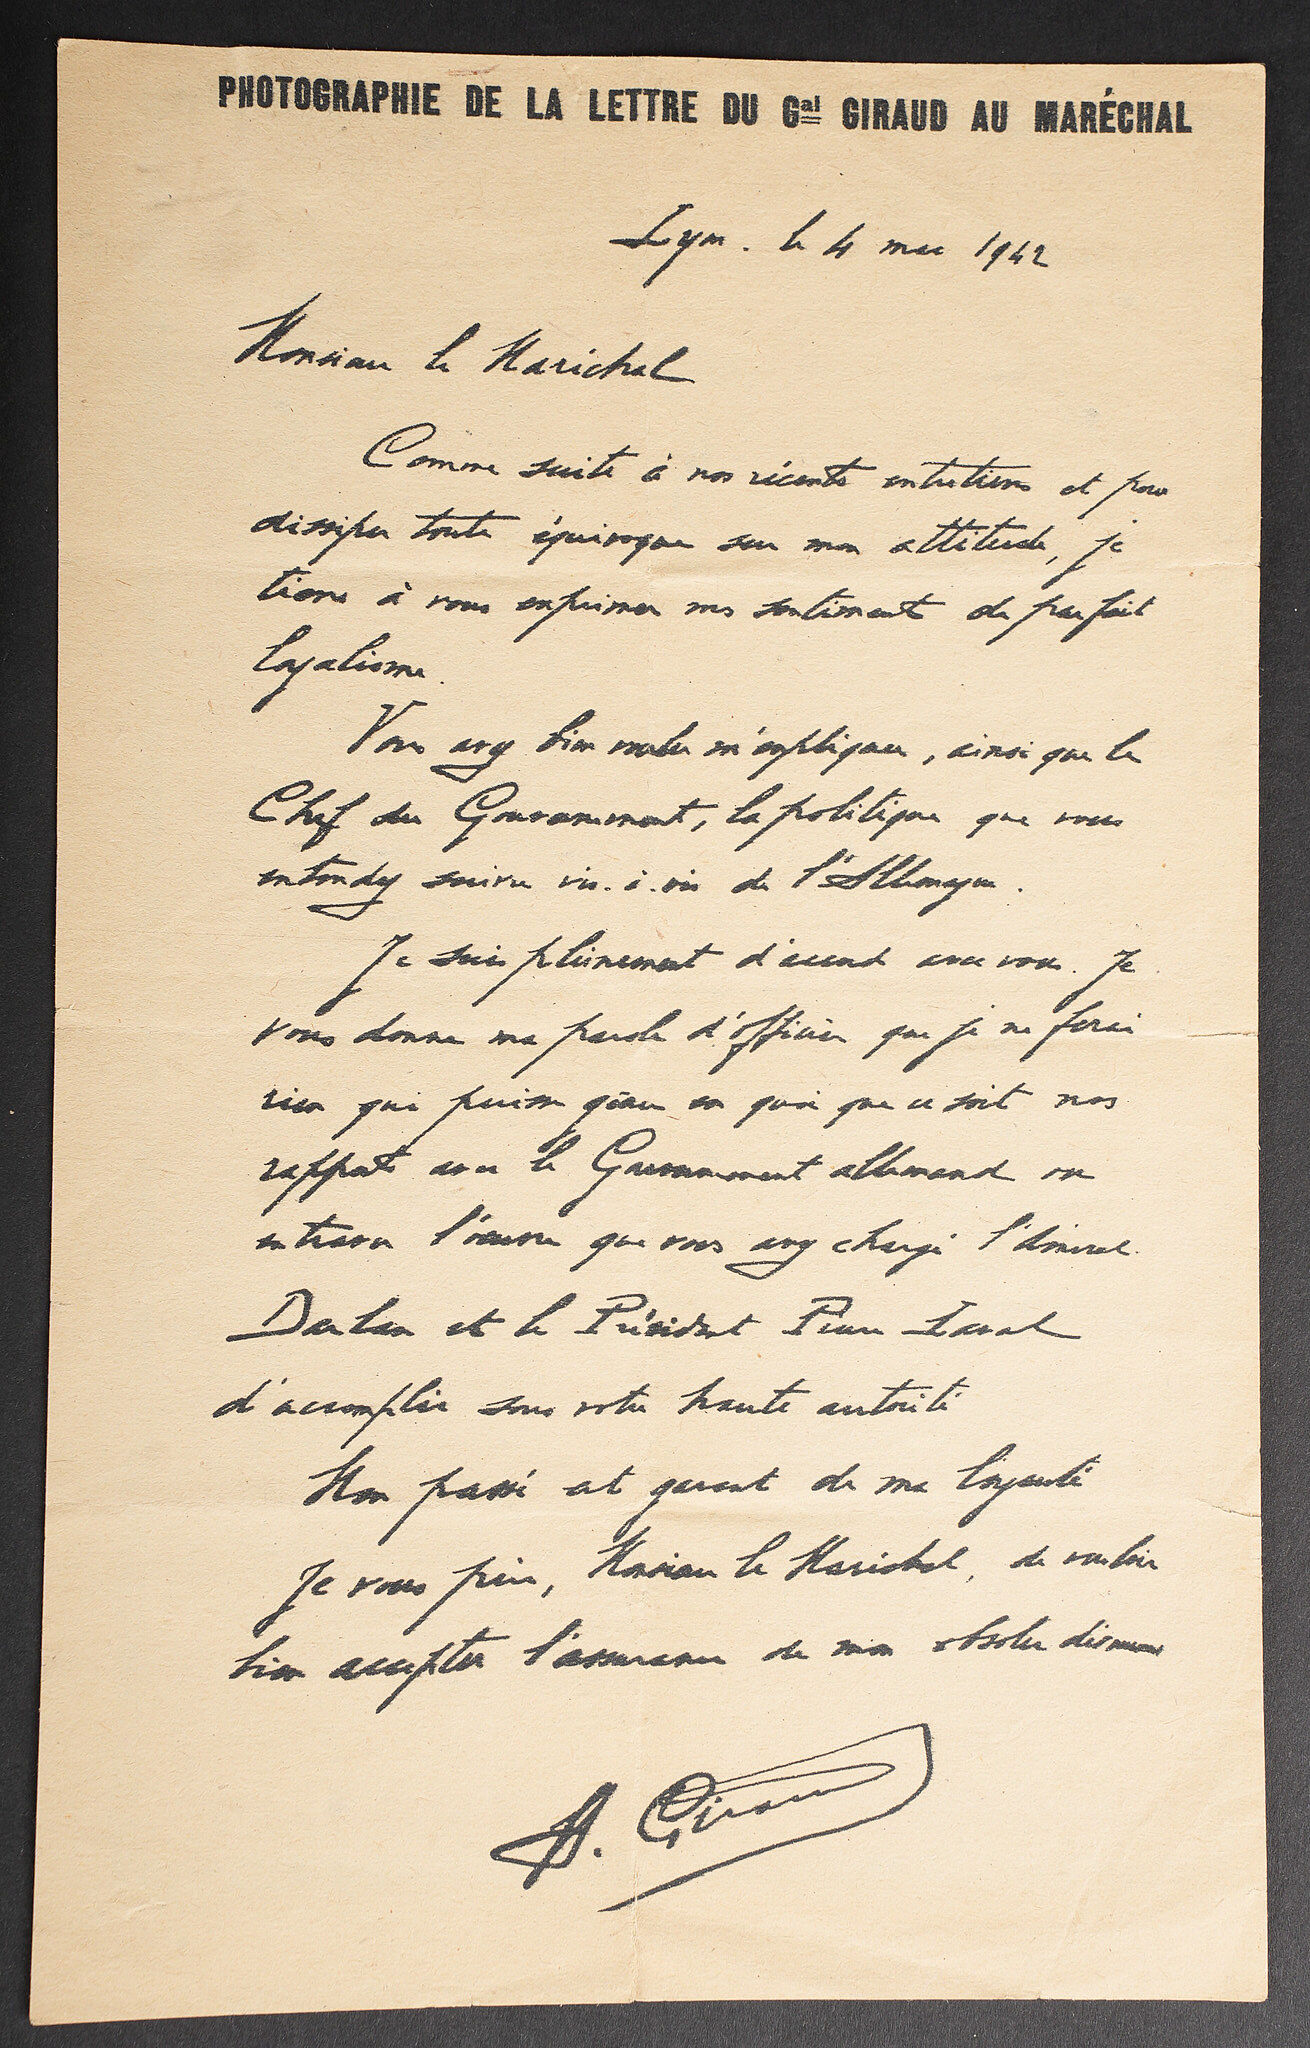 PHOTOGRAPHIE DE LA LETTRE DU Gal GIRAUD AU MARÉCHAL
Lyon. le 4 mai 1942
Monsieur le Maréchal
Comme suite à nos récents entretiens et pour
dissiper toute équivoque sur mon attitude, je
tiens à vous exprimer mes sentiments de parfait
loyalisme.
Vous avez bien voulu m'expliquer, ainsi que le
Chef du Gouvernement, la politique que vous
entendez suivre vis. à. vis de l'Allemagne.
Je suis pleinement d'accord avec vous. Je
vous donne ma parole d'officier que je ne ferai
rien qui puisse gêner en quoi que ce soit nos
rapports avec le Gouvernement allemand ou
entraver l'oeuvre que vous avez chargé l'Amiral
Darlan et le Président Pierre Laval
d'accomplir sous votre haute autorité
Mon passé est garant de ma loyauté
Je vous prie, Monsieur le Maréchal, de vouloir
bien accepter l'assurance de mon absolu dévouement
H. Giraud